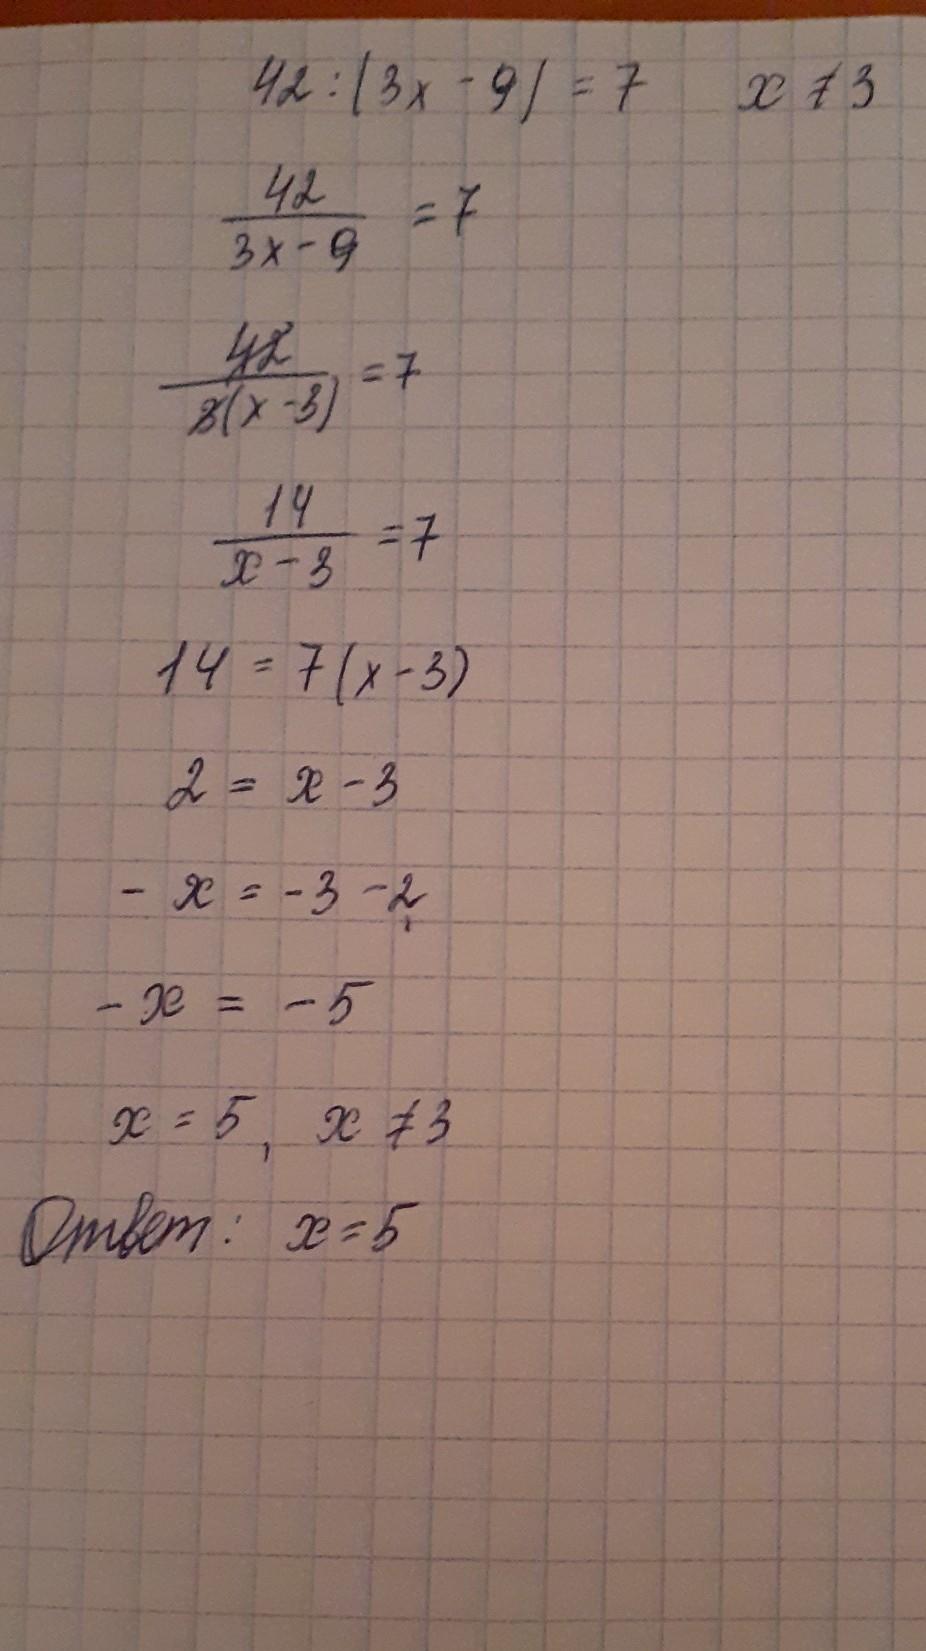 42 : (3x - 9) = 7 x ≠ 3
42
3x - 9 = 7
42
3(x - 3) = 7
14
x - 3 = 7
14 = 7(x - 3)
2 = x - 3
- x = -3 - 2
- x = - 5
x = 5, x ≠ 3
Ответ: x = 5